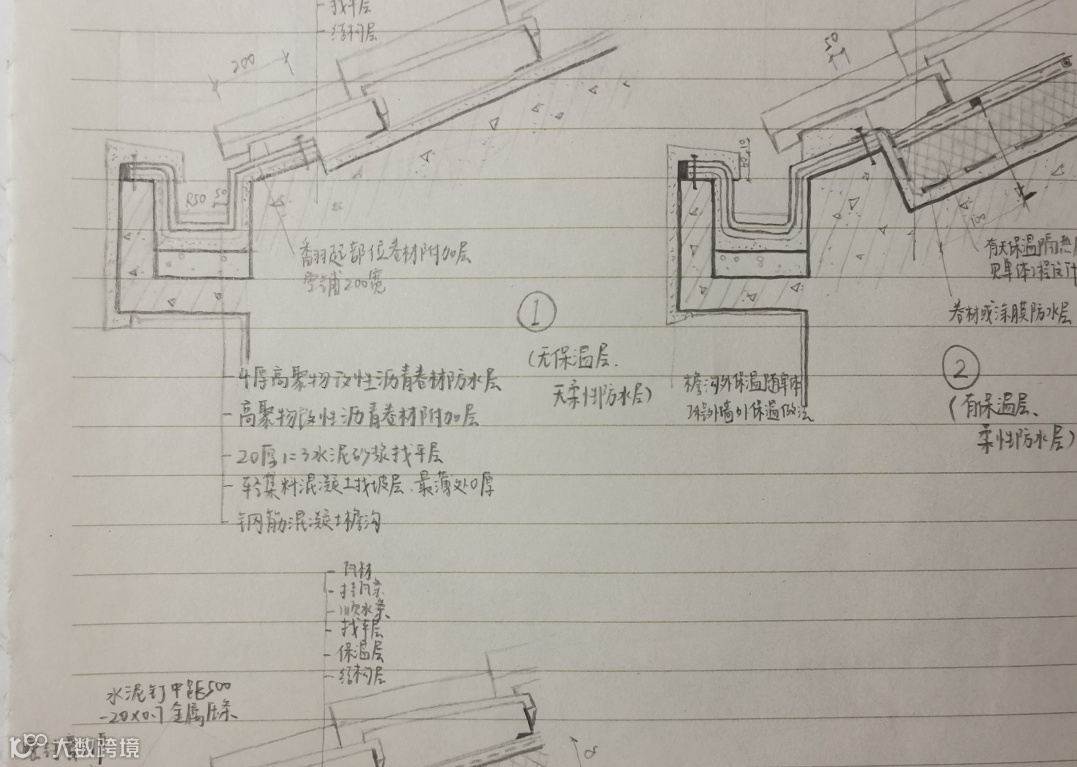 找平层
结构层
200
50
R50
50
翻起部位卷材附加层
空铺200宽
①
(无保温层、
无柔性防水层)
4厚高聚物改性沥青卷材防水层
高聚物改性沥青卷材附加层
20厚1:3水泥砂浆找平层
轻集料混凝土找坡层、最薄处0厚
钢筋混凝土檐沟
有无保温隔热
见单体工程设计
卷材或涂膜防水层
檐沟外保温随单体
工程外墙外保温做法
②
(有保温层、
柔性防水层)
瓦材
挂瓦条
顺水条
找平层
保温层
结构层
水泥钉中距500
-20×0.7金属压条
α
大数跨境